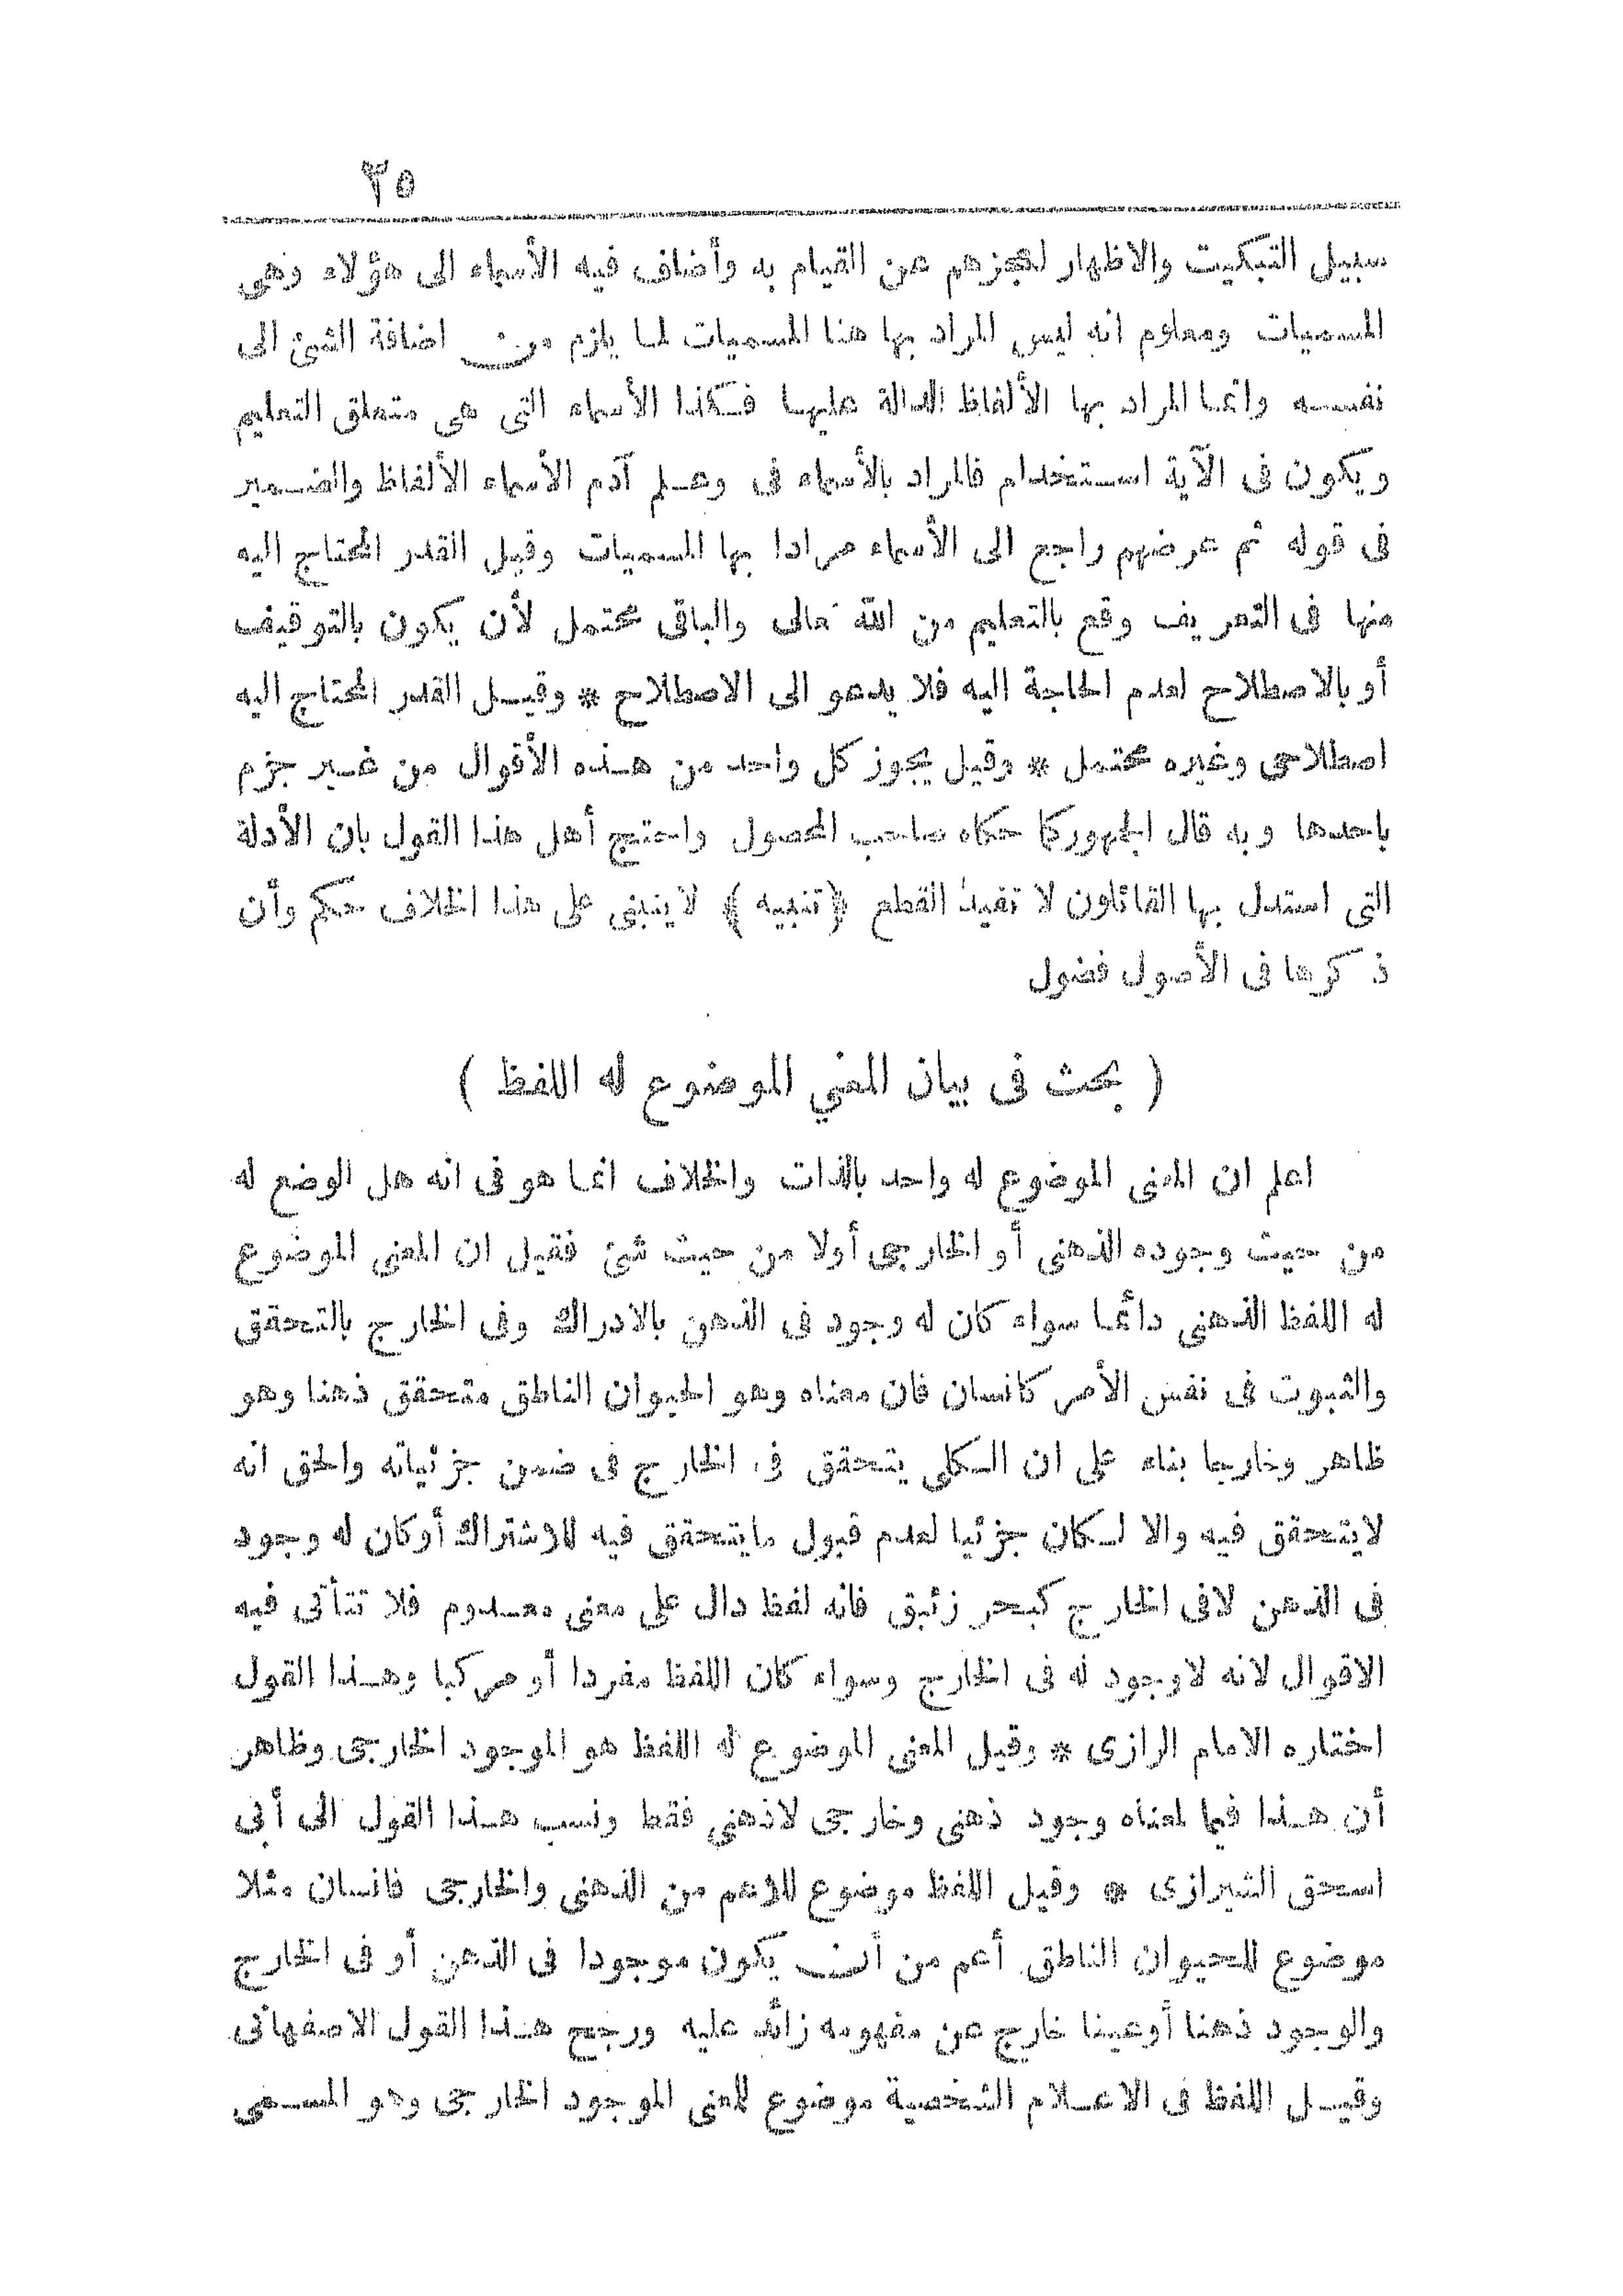 ٣٥
سبيل التبكيت والاظهار لعجزهم عن القيام به وأضاف فيه الأسماء الى هؤلاء وهى
المسميات ومعلوم انه ليس المراد بها هنا المسميات لما يلزم من اضافة الشئ الى
نفسه وانما المراد بها الألفاظ الدالة عليها فكذا الأسماء التى هى متعلق التعليم
ويكون فى الآية استخدام فالمراد بالأسماء فى وعلم آدم الأسماء الألفاظ والضمير
فى قوله ثم عرضهم راجع الى الأسماء مرادا بها المسميات وقيل القدر المحتاج اليه
منها فى التعريف وقع بالتعليم من الله تعالى والباقى محتمل لأن يكون بالتوقيف
أو بالاصطلاح لعدم الحاجة اليه فلا يدعو الى الاصطلاح * وقيل القدر المحتاج اليه
اصطلاحى وغيره محتمل * وقيل يجوز كل واحد من هذه الأقوال من غير جزم
باحدها وبه قال الجمهور كما حكاه صاحب المحصول واحتج أهل هذا القول بان الأدلة
التى استدل بها القائلون لا تفيد القطع ﴿تنبيه﴾ لا ينبنى على هذا الخلاف حكم وأن
ذكرها فى الأصول فضول
( بحث فى بيان المعني الموضوع له اللفظ )
اعلم ان المعنى الموضوع له واحد بالذات والخلاف انما هو فى انه هل الوضع له
من حيث وجوده الذهنى أو الخارجى أولا من حيث شئ فقيل ان المعنى الموضوع
له اللفظ الذهنى دائما سواء كان له وجود فى الذهن بالادراك وفى الخارج بالتحقق
والثبوت فى نفس الأمر كانسان فان معناه وهو الحيوان الناطق متحقق ذهنا وهو
ظاهر وخارجا بناء على ان الكلى يتحقق فى الخارج فى ضمن جزئياته والحق انه
لا يتحقق فيه والا لكان جزئيا لعدم قبول ما يتحقق فيه للاشتراك أوكان له وجود
فى الذهن لافى الخارج كبحر زئبق فانه لفظ دال على معنى معدوم فلا تتأتى فيه
الاقوال لانه لاوجود له فى الخارج وسواء كان اللفظ مفردا أو مركبا وهذا القول
اختاره الامام الرازى * وقيل المعنى الموضوع له اللفظ هو الموجود الخارجى وظاهر
أن هذا فيما لمعناه وجود ذهنى وخارجى لاذهنى فقط ونسب هذا القول الى أبى
اسحق الشيرازى * وقيل اللفظ موضوع للاعم من الذهنى والخارجى فانسان مثلا
موضوع للحيوان الناطق أعم من أن يكون موجودا فى الذهن أو فى الخارج
والوجود ذهنا أوعينا خارج عن مفهومه زائد عليه ورجح هذا القول الاصفهانى
وقيل اللفظ فى الاعلام الشخصية موضوع للمعنى الموجود الخارجى وهو المسمى